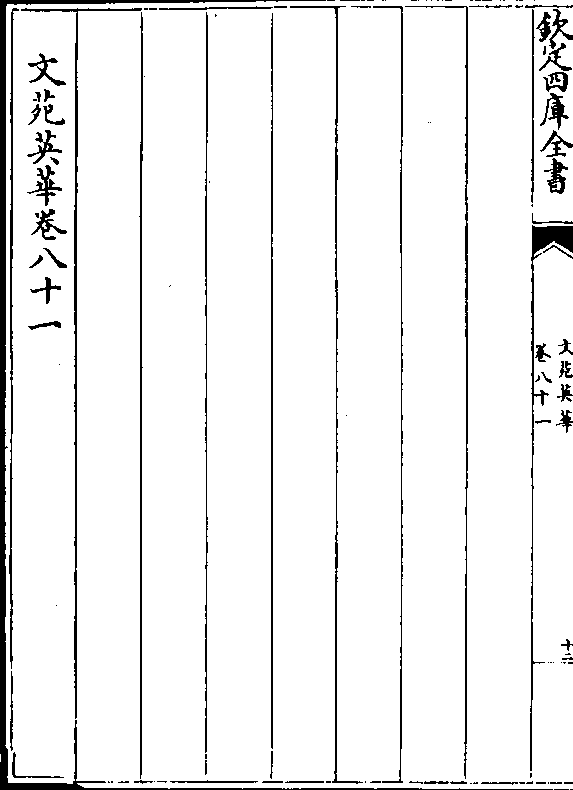 欽定四庫全書
文苑英華
卷八十一
十二
文苑英華卷八十一